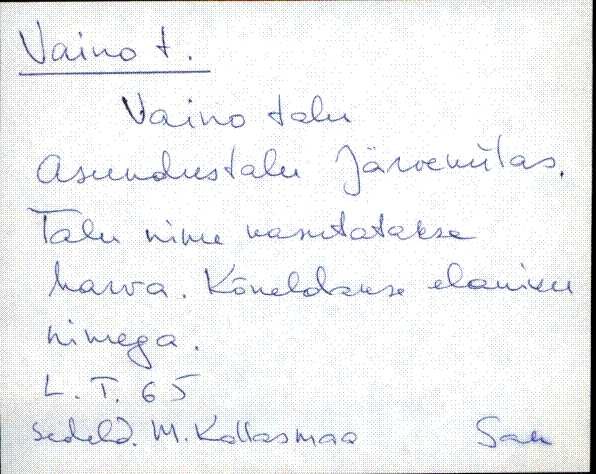 Vaino t.
Vaino talu
Asundustalu Järvekülas.
Talu nime kasutatakse
harva. Kõneldakse elaniku
nimega.
L. T. 65
sedeld. M. Kallasmaa San